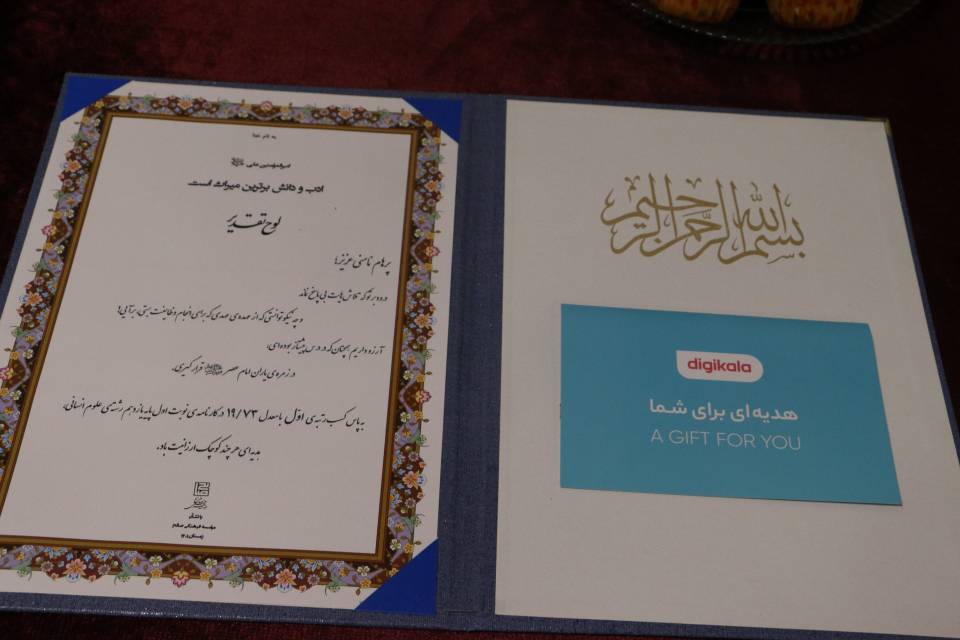 به نام خدا
امیرالمؤمنین علی
ادب و دانش برترین میراث است
لوح تقدیر
پرهام نامنی عزیز؛
درود بر تو که تلاش‌هایت بی‌پاسخ نماند
و چه نیکو توانستی که از عهده‌ی عهدی که برای انجام وظایفت بستی، برآیی؛
آرزو داریم همچنان که در درس پیشتاز بوده‌ای،
در زمره‌ی یاران امام عصر قرار گیری.
به پاس کسب رتبه‌ی اوّل با معدل ۱۹/۷۳ در کارنامه‌ی نوبت اول پایه یازدهم رشته‌ی علوم انسانی،
هدیه‌ای هر چند کوچک ارزانیت باد.
مؤسسه فرهنگی
بسم الله الرحمن الرحیم
digikala
هدیه‌ای برای شما
A GIFT FOR YOU